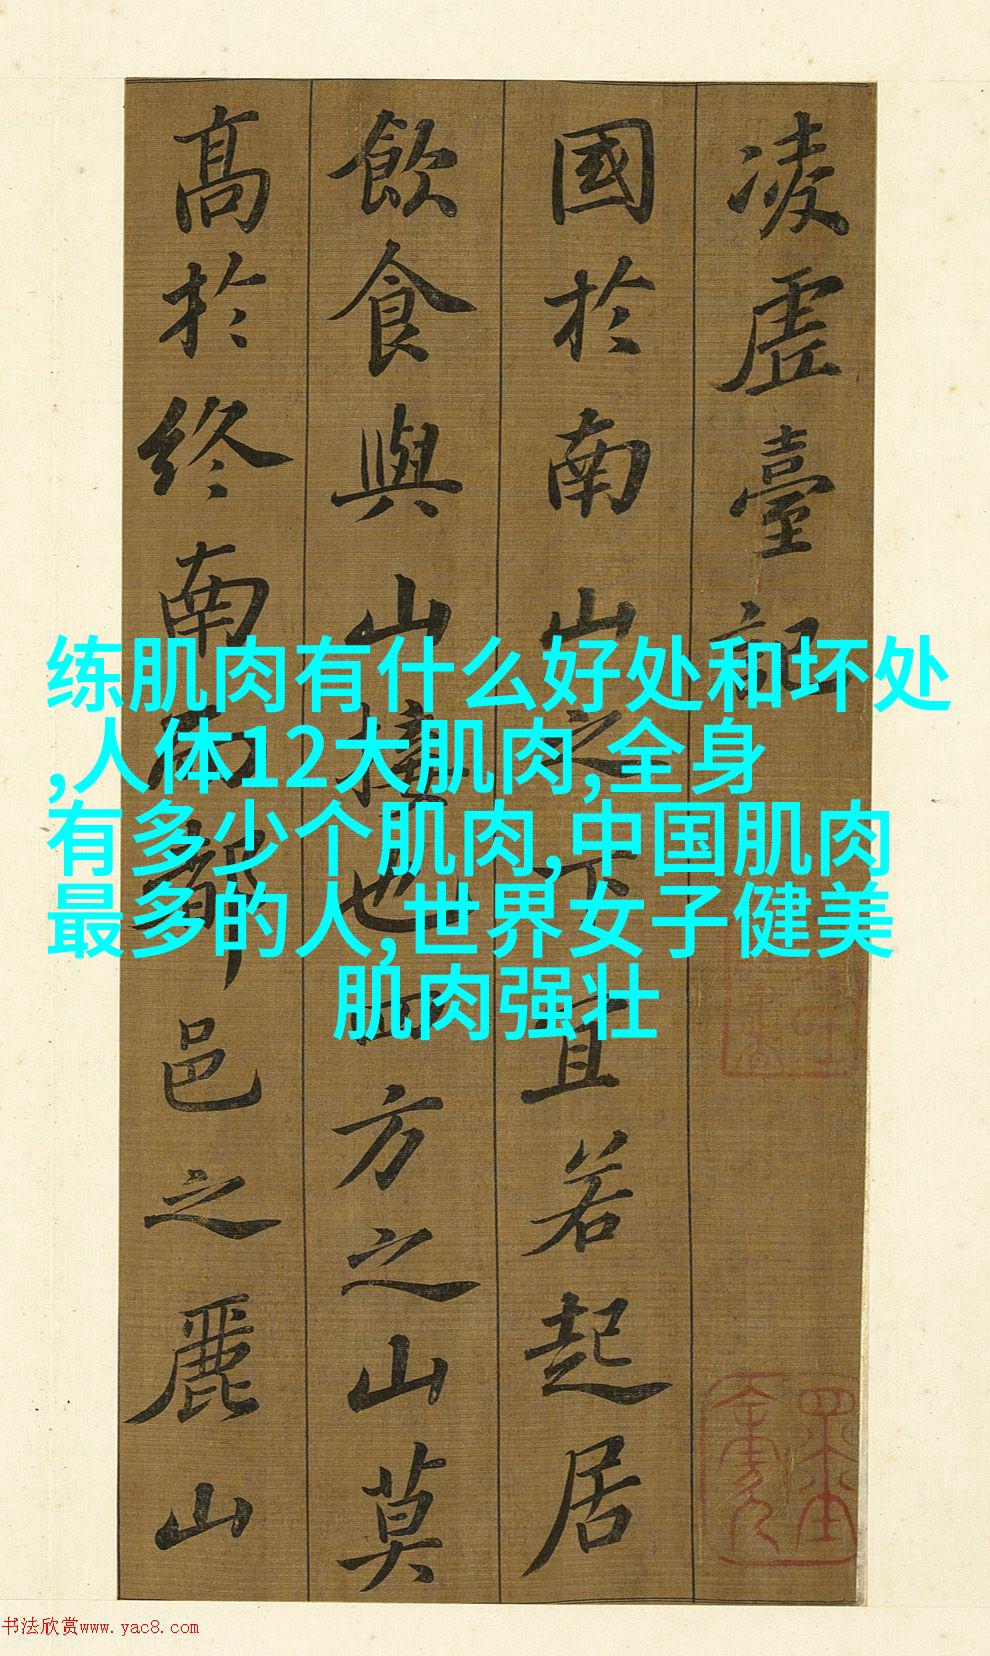 凌虛臺記
國於南山之下宜若起居
飲食與山接也四方之山莫
高於終南而都邑之麗山
练肌肉有什么好处和坏处
,人体12大肌肉,全身
有多少个肌肉,中国肌肉
最多的人,世界女子健美
肌肉强壮
书法欣赏www.yac8.com